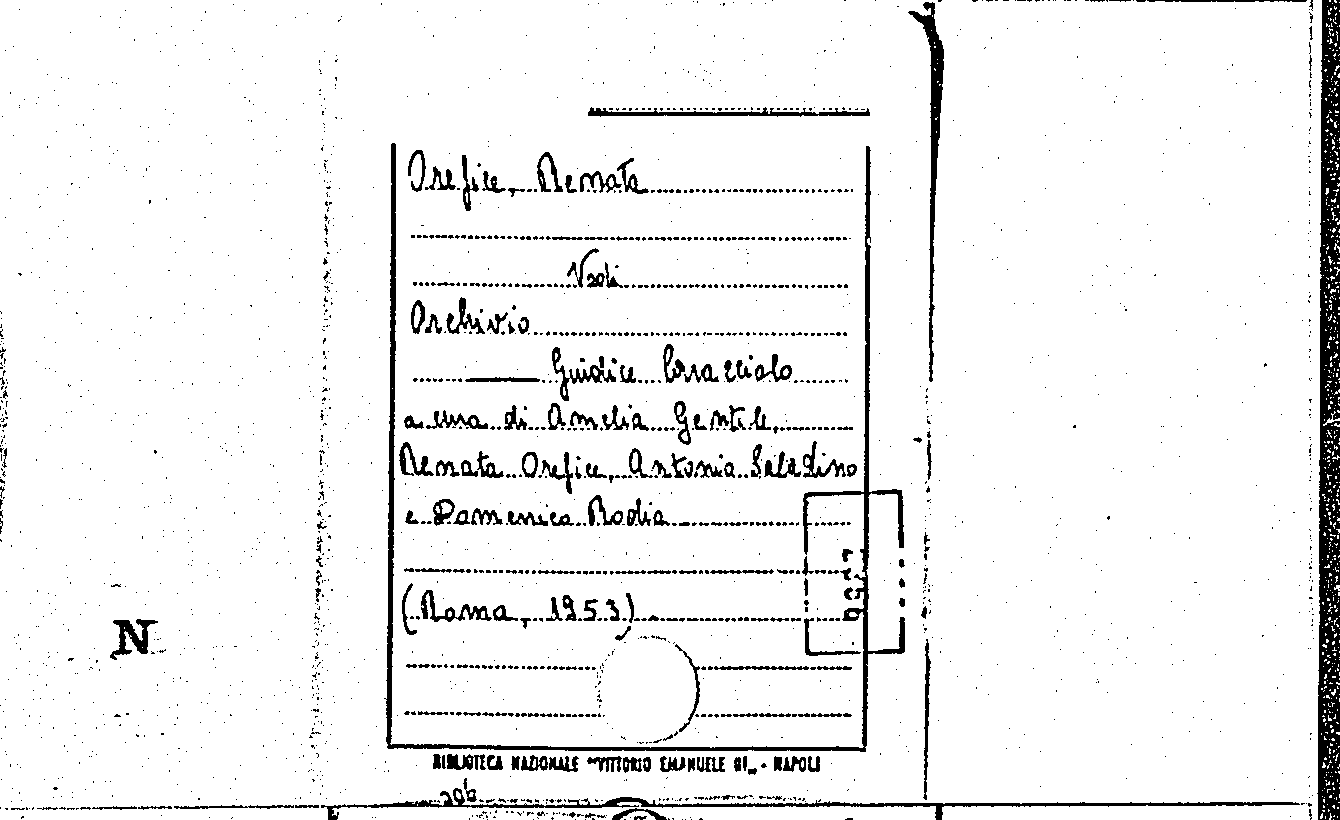 Orefice, Renata
Vedi
Archivio
Giudice Caracciolo
a cura di Amelia Gentile,
Renata Orefice, Antonia Saladino
e Domenica Rodia
(Roma, 1953).
N
BIBLIOTECA NAZIONALE "VITTORIO EMANUELE III" - NAPOLI